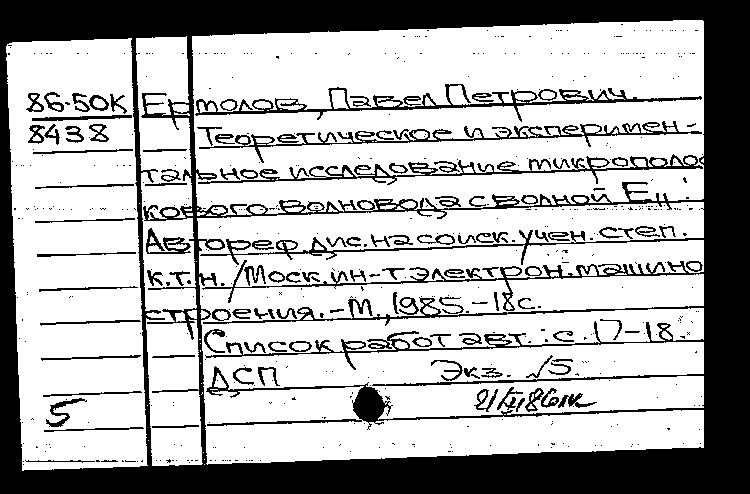 86-50К Ермолов, Павел Петрович.
8438 Теоретическое и эксперимен-
тальное исследование микрополос
кового волновода с волной E11 :
Автореф. дис. на соиск. учен. степ.
к.т.н. / Моск. ин-т электрон. машино
строения. - М., 1985. - 18 с.
Список работ авт. : с. 17-18.
ДСП Экз. √5.
5